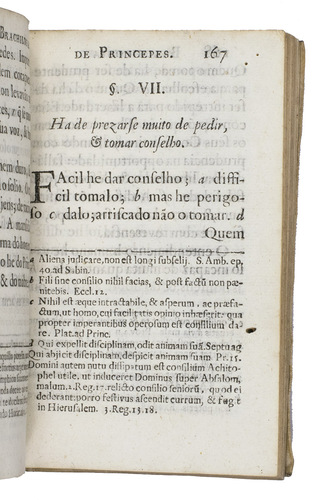 DE PRINCEPES. 167
§. VII.
Ha de prezarse muito de pedir,
& tomar conselho.
FAcil he dar conselho; a diffi-
cil tomalo; b mas he perigo-
so c dalo; arriscado não o tomar. d
Quem
a Aliena judicare, non est longi subselij. S. Amb. ep.
40. ad Sabin.
b Fili sine consilio nihil facias, & post factũ non pæ-
nitebis. Eccl. 12.
c Nihil est æque intractabile, & asperum, ac præfa-
ctum, ut homo, cui facilitatis opinio inhæserit: qua
propter imperantibus operosum est consilium da-
re. Plat. ad Princ.
d Qui expellit disciplinam, odit animam suã. Septuag
Qui abjicit disciplinam, despicit animam suam. Pr. 15.
Domini autem nutu dissipatum est consilium Achito-
phel utile, ut induceret Dominus super Absalom,
malum. 2. Reg. 17. relicto consilio senorũ, quod ei
dederant: porro festivus ascendit currum, & fugit
in Hierusalem. 3. Reg. 13. 18.